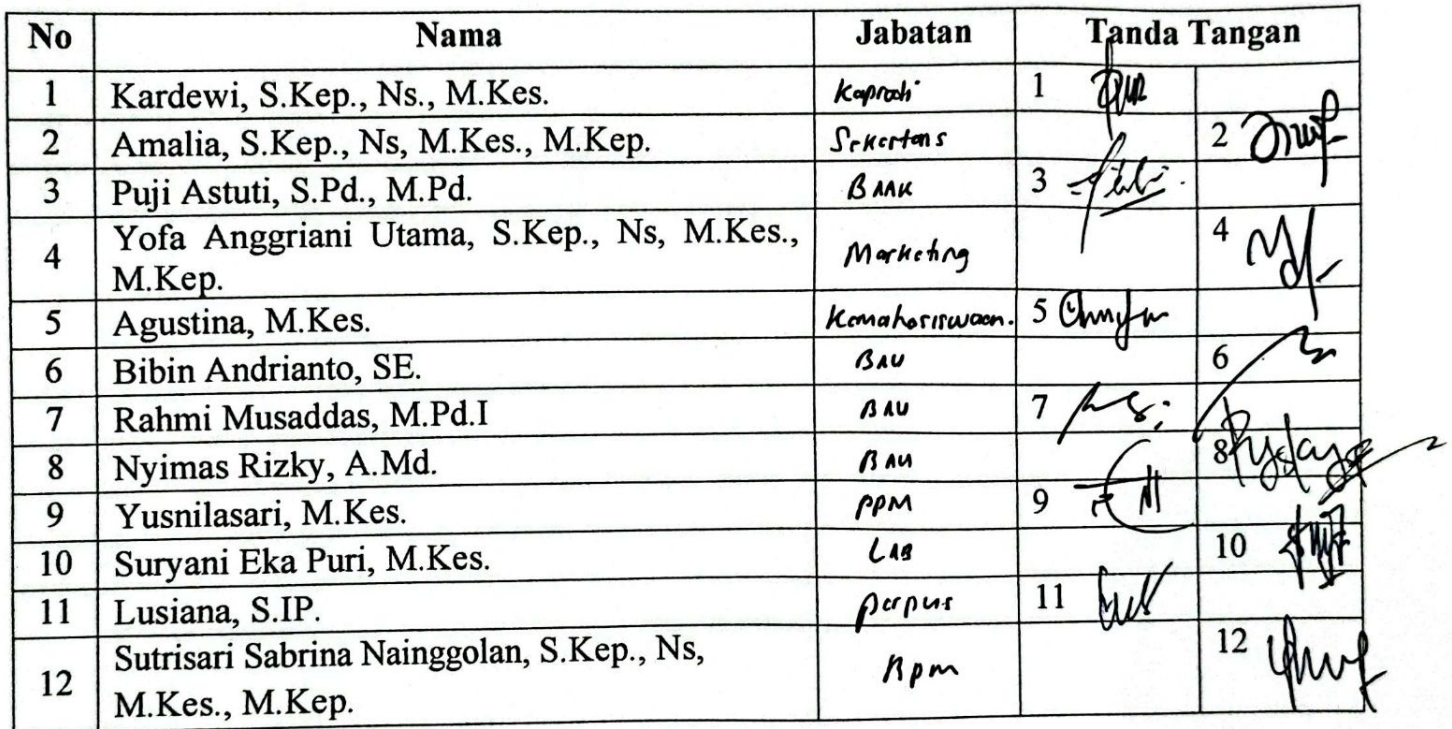 No Nama Jabatan Tanda Tangan
1 Kardewi, S.Kep., Ns., M.Kes. Kaprodi 1
2 Amalia, S.Kep., Ns, M.Kes., M.Kep. Sekertaris 2
3 Puji Astuti, S.Pd., M.Pd. BAAK 3
4 Yofa Anggriani Utama, S.Kep., Ns, M.Kes., Marketing 4
M.Kep.
5 Agustina, M.Kes. Kemahasiswaan. 5
6 Bibin Andrianto, SE. BAU 6
7 Rahmi Musaddas, M.Pd.I BAU 7
8 Nyimas Rizky, A.Md. BAU 8
9 Yusnilasari, M.Kes. PPM 9
10 Suryani Eka Puri, M.Kes. LAB 10
11 Lusiana, S.IP. perpus 11
12 Sutrisari Sabrina Nainggolan, S.Kep., Ns, 12
M.Kes., M.Kep.